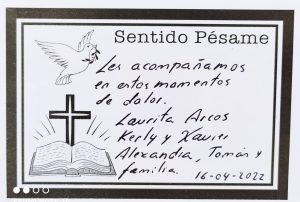 Sentido Pésame
Les acompañamos
en estos momentos
de dolor.
Laurita Arcos
Kerly y Xavier
Alexandra, Tomás y
familia.
16-04-2022